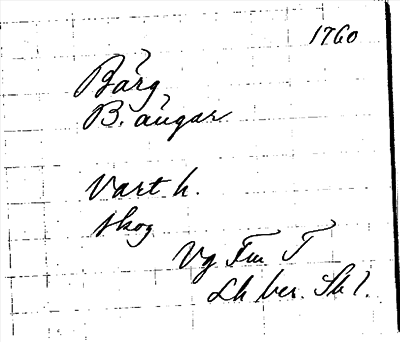 1760
Bärg
B. ängar
Vart h.
skog
Vg Fm. T
Lh ber. Sk 1.